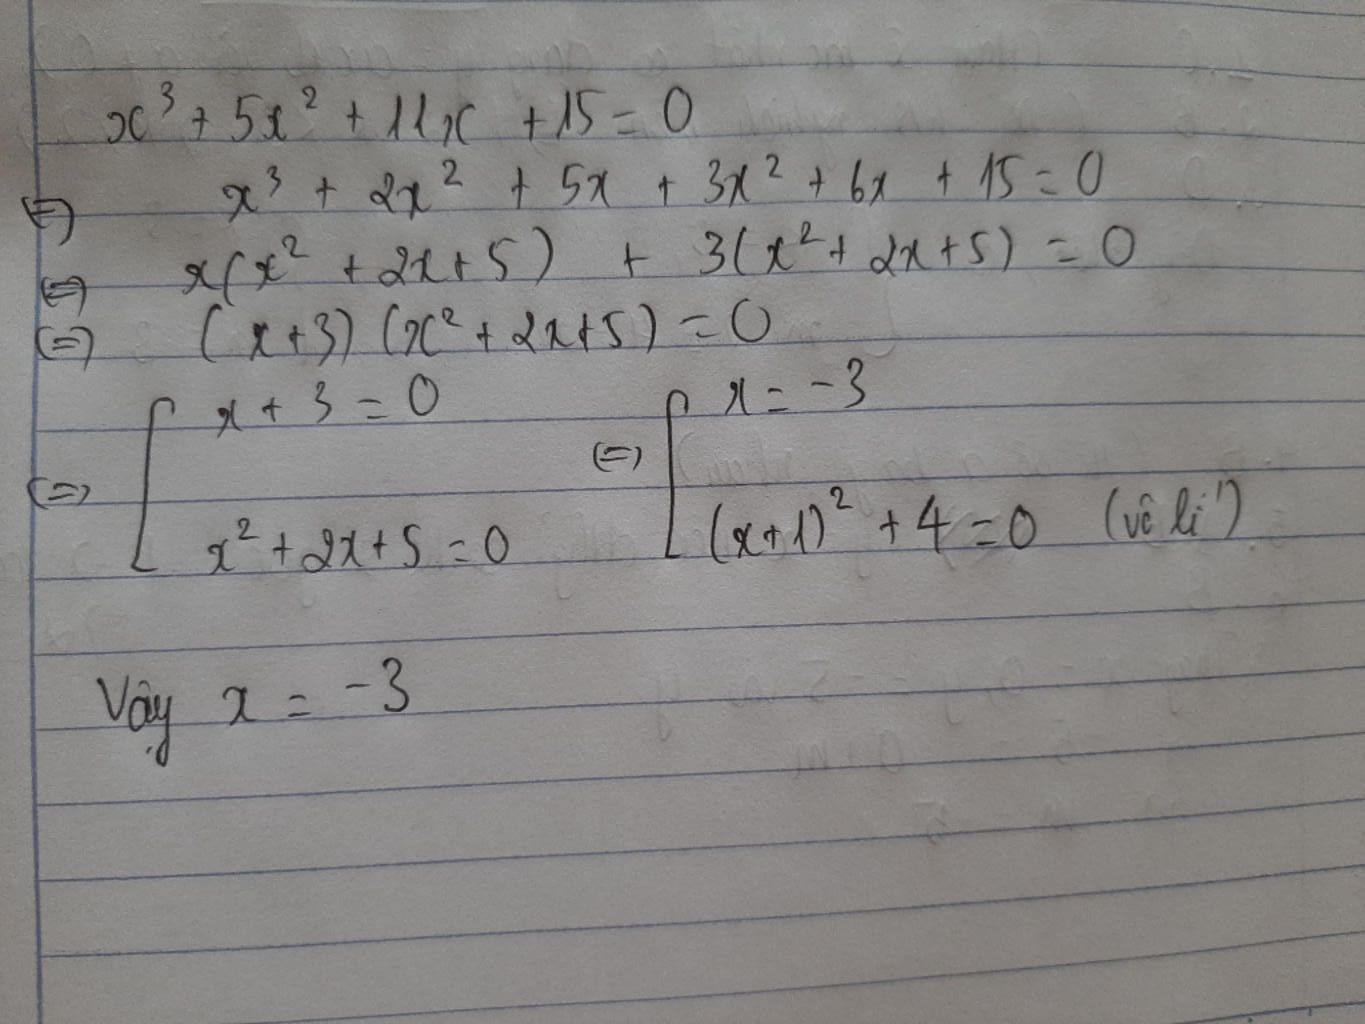 x³ + 5x² + 11x + 15 = 0
(=) x³ + 2x² + 5x + 3x² + 6x + 15 = 0
(=) x(x² + 2x + 5) + 3(x² + 2x + 5) = 0
(=) (x + 3) (x² + 2x + 5) = 0
(=) [ x + 3 = 0 (=) [ x = -3
x² + 2x + 5 = 0 (x + 1)² + 4 = 0 (vô lí)
Vậy x = -3